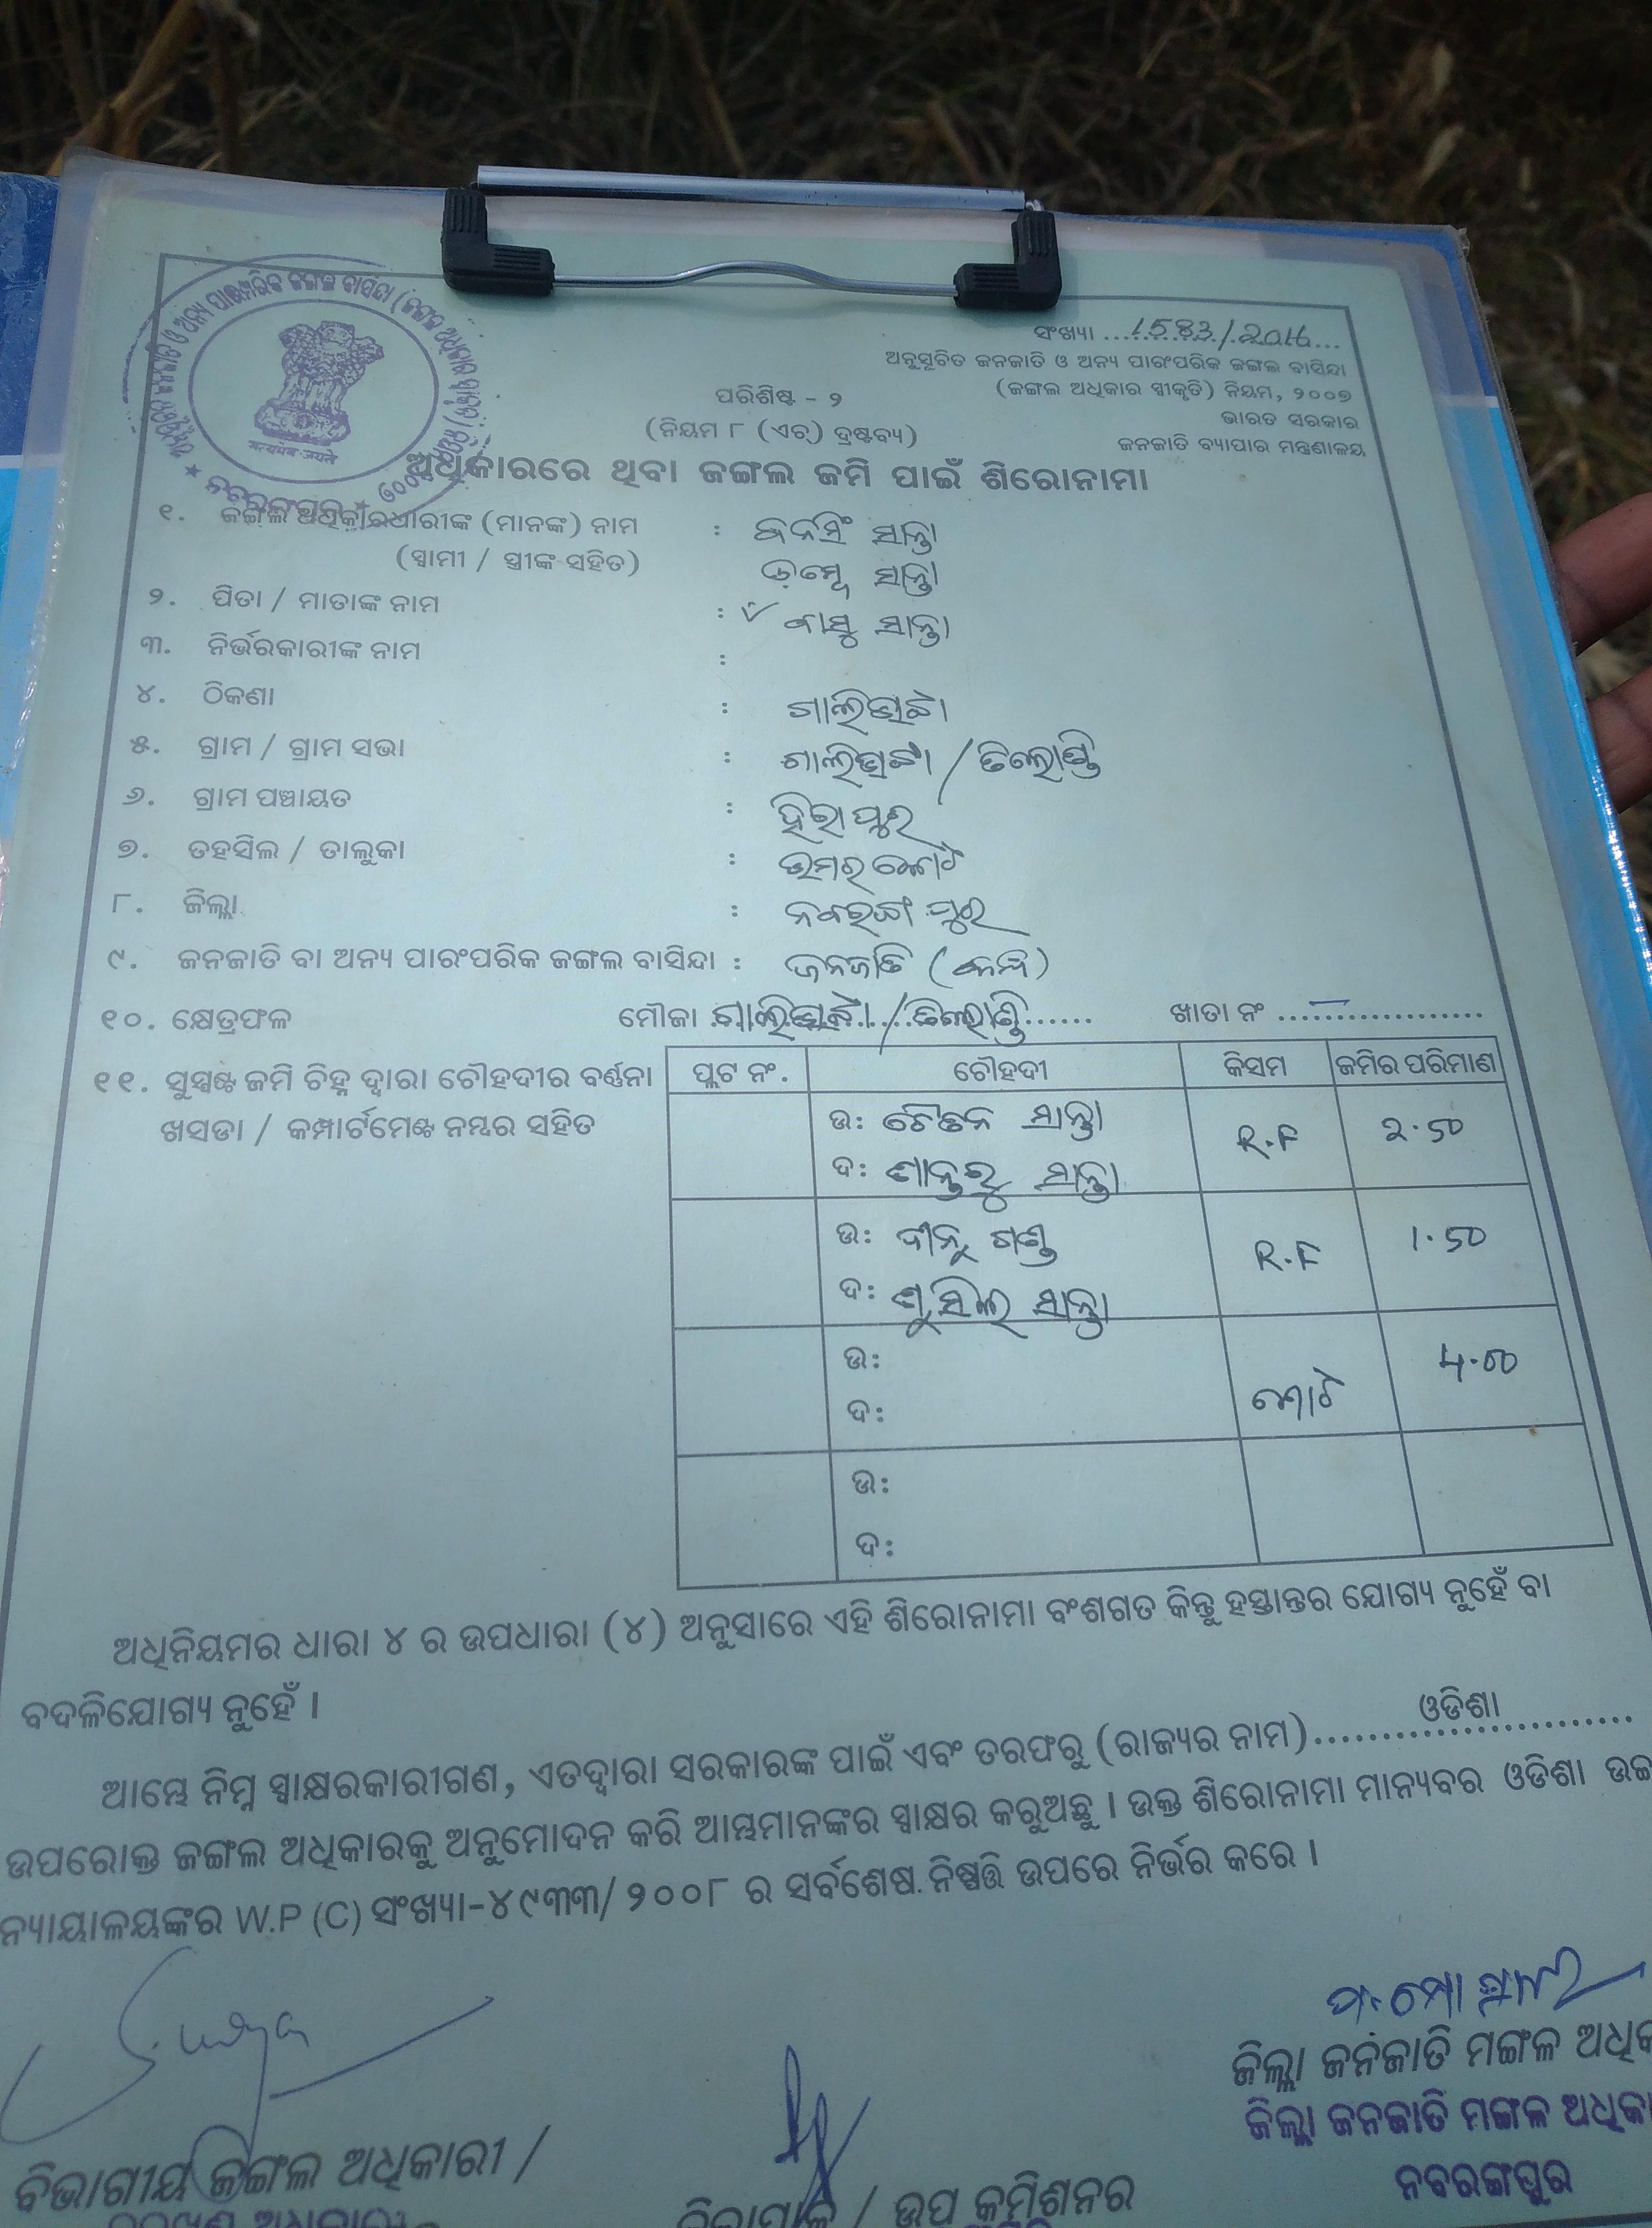 ସଂଖ୍ୟା ...1583/2016...
ଅନୁସୂଚିତ ଜନଜାତି ଓ ଅନ୍ୟ ପାରଂପରିକ ଜଙ୍ଗଲ ବାସିନ୍ଦା
(ଜଙ୍ଗଲ ଅଧିକାର ସ୍ୱୀକୃତି) ନିୟମ, ୨୦୦୭
ପରିଶିଷ୍ଟ - ୨
ଭାରତ ସରକାର
(ନିୟମ ୮ (ଏଚ୍) ଦ୍ରଷ୍ଟବ୍ୟ)
ଜନଜାତି ବ୍ୟାପାର ମନ୍ତ୍ରଣାଳୟ
ଅଧିକାରରେ ଥିବା ଜଙ୍ଗଲ ଜମି ପାଇଁ ଶିରୋନାମା
୧. ଜଙ୍ଗଲ ଅଧିକାରଧାରୀଙ୍କ (ମାନଙ୍କ) ନାମ : ସାନ୍ତା
(ସ୍ୱାମୀ / ସ୍ତ୍ରୀଙ୍କ ସହିତ) ସାନ୍ତା
୨. ପିତା / ମାତାଙ୍କ ନାମ : ବାସୁ ସାନ୍ତା
୩. ନିର୍ଭରକାରୀଙ୍କ ନାମ :
୪. ଠିକଣା :
୫. ଗ୍ରାମ / ଗ୍ରାମ ସଭା :
୬. ଗ୍ରାମ ପଞ୍ଚାୟତ : ହିରାପୁର
୭. ତହସିଲ / ତାଲୁକା : ଉମରକୋଟ
୮. ଜିଲ୍ଲା : ନବରଙ୍ଗପୁର
୯. ଜନଜାତି ବା ଅନ୍ୟ ପାରଂପରିକ ଜଙ୍ଗଲ ବାସିନ୍ଦା : ଜନଜାତି
୧୦. କ୍ଷେତ୍ରଫଳ ମୌଜା ...... ଖାତା ନଂ ..................
୧୧. ସୁସ୍ପଷ୍ଟ ଜମି ଚିହ୍ନ ଦ୍ୱାରା ଚୌହଦୀର ବର୍ଣ୍ଣନା
ଖସଡା / କମ୍ପାର୍ଟମେଣ୍ଟ ନମ୍ବର ସହିତ
ପ୍ଲଟ ନଂ. ଚୌହଦୀ କିସମ ଜମିର ପରିମାଣ
ଉ: ଚୈତନ ସାନ୍ତା R.F 2.50
ଦ: ସାନ୍ତା
ଉ: ଦୀନୁ ଗଣ୍ଡ R.F 1.50
ଦ: ସାନ୍ତା
ଉ: 4.00
ଦ: ମୋଟ
ଉ:
ଦ:
ଅଧିନିୟମର ଧାରା ୪ ର ଉପଧାରା (୪) ଅନୁସାରେ ଏହି ଶିରୋନାମା ବଂଶଗତ କିନ୍ତୁ ହସ୍ତାନ୍ତର ଯୋଗ୍ୟ ନୁହେଁ ବା
ବଦଳିଯୋଗ୍ୟ ନୁହେଁ ।
ଆମ୍ଭେ ନିମ୍ନ ସ୍ୱାକ୍ଷରକାରୀଗଣ, ଏତଦ୍ୱାରା ସରକାରଙ୍କ ପାଇଁ ଏବଂ ତରଫରୁ (ରାଜ୍ୟର ନାମ)........ଓଡିଶା........
ଉପରୋକ୍ତ ଜଙ୍ଗଲ ଅଧିକାରକୁ ଅନୁମୋଦନ କରି ଆମ୍ଭମାନଙ୍କର ସ୍ୱାକ୍ଷର କରୁଅଛୁ । ଉକ୍ତ ଶିରୋନାମା ମାନ୍ୟବର ଓଡିଶା
ନ୍ୟାୟାଳୟଙ୍କର W.P (C) ସଂଖ୍ୟା-୪୯୩୩/୨୦୦୮ ର ସର୍ବଶେଷ ନିଷ୍ପତ୍ତି ଉପରେ ନିର୍ଭର କରେ ।
ଜିଲ୍ଲା ଜନଜାତି ମଙ୍ଗଳ
ଜିଲ୍ଲା ଜନଜାତି ମଙ୍ଗଳ
ନବରଙ୍ଗପୁର
ବିଭାଗୀୟ ଜଙ୍ଗଲ ଅଧିକାରୀ /
/ ଉପ କମିଶନର